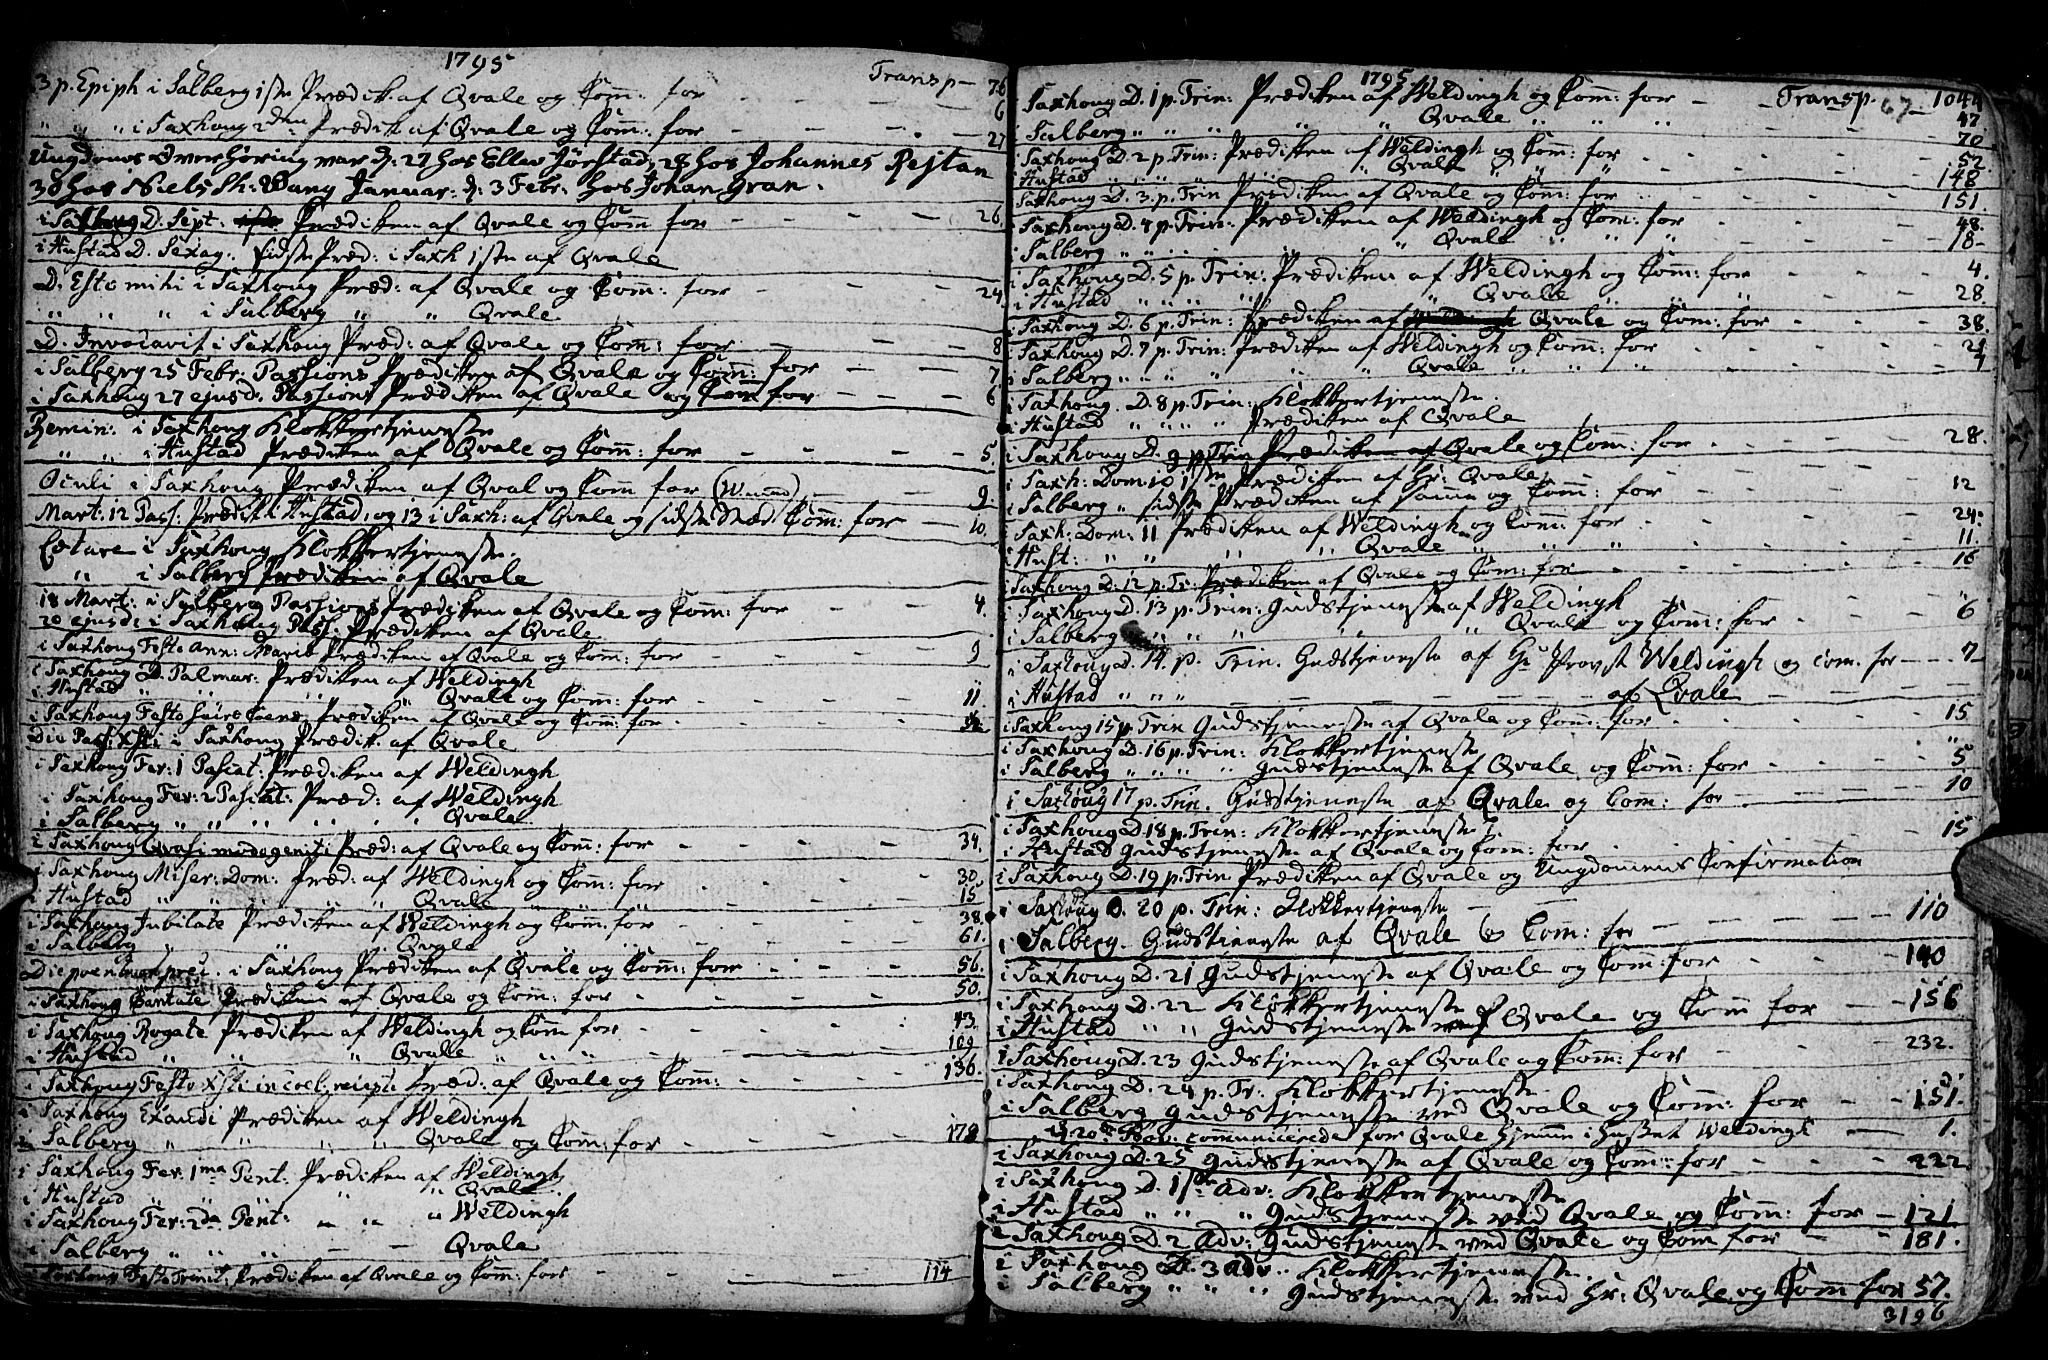 1795
3 p. Epiph i Salberg 1ste Prædik. af Qvale og Com: for Transp - 76
" " " i Saxhoug 2den Prædik af Qvale og Com: for - - - - 6
27
Ungdoms Overhøring var d: 27 hos Ellev Jørstad, 28 hos Johannes Rejtan
30 hos Niels Sh: Wang Januar: d: 3 Febr: hos Johan Gran.
i D. Sept: Prædiken af Qvale og Com for - - - - 26
i Hustad D. Sexag: sidste Præd: i Saxh 1ste af Qvale
D. Esto mihi i Saxhoug Præd: af Qvale og Com: for - - - 24
" " " i Salberg " " Qvale
D. Invocavit i Saxhoug Præd: af Qvale og Com: for - - - 8
i Salberg 25 Febr: Passions Prædiken af Qvale og Com: for - - 7
i Saxhoug 27 ejusd: Passions Prædiken af Qvale og Com for - - - 6
Remin: i Saxhoug Klokkertjeneste
" " i Hustad Prædiken af Qvale og Com: for - - - - 5
Oculi i Saxhoug Prædiken af Qval og Com for - - 9
Mart: 12 Pass: Prædik i Hustad, og 13 i Saxh: af Qvale og sidste Sted Com: for - 10.
Lætare i Saxhoug Klokkertjeneste.
" i Salberg Prædiken af Qvale
18 Mart: i Salberg Passions Prædiken af Qvale og Com: for - - - 4.
20 ejusd i Saxhoug Pass: Prædiken af Qvale
i Saxhoug Festo Ann: Mariæ Prædiken af Qvale og Com: for - - - 9
i Saxhoug D. Palmar: Prædiken af Weldingh
i Hustad " " " Qvale og Com: for - - - 11.
i Saxhoug Festo Prædiken af Qvale og Com: for - - -
Die Pass: Xsti i Saxhoug Prædik. af Qvale
i Saxhoug Fer: 1 Pascat: Prædiken af Weldingh
i Saxhoug Fer: 2 Pascat: Præd: af Weldingh
i Salberg " " " " " Qvale
i Saxhoug Qvasimodogeniti Præd: af Qvale og Com: for - - - 34.
i Saxhoug Miser: Dom: Præd: af Weldingh og Com: for - - - 30.
i Hustad " " " Qvale " " " - - - 15
i Saxhoug Jubilate Prædiken af Weldingh og Com: for - - - 38.
i Salberg " " " Qvale " " " - - - 61.
Die i Saxhoug Prædiken af Qvale og Com: for - - - 56.
i Saxhoug Cantate Prædiken af Qvale og Com: for - - - 50.
i Saxhoug Rogate Prædiken af Weldingh og Com for - - - 43.
i Hustad " " " Qvale " " " - - - 109
i Saxhoug Festo Xsti in coel: Præd: af Qvale og Com: - - - 136.
i Saxhoug Exaudi Prædiken af Weldingh
i Salberg " " " Qvale og Com: for - - - 178
i Saxhoug Fer: 1ma Pent: Prædiken af Weldingh
i Hustad " " " " Qvale
i Saxhoug Fer: 2da Pent: " " " Weldingh
i Salberg " " " - - Qvale
i Saxhoug Festo Trinit: Prædiken af Qvale og Com: for - - - 114
1795
67
i Saxhoug D. 1 p. Trin: Prædiken af Weldingh og Com: for - - Transp. - 1044
i Salberg " " " " " Qvale " " " - - - 47
70
i Saxhoug D. 2 p. Trin: Prædiken af Weldingh og Com: for - - - 52
i Hustad " " " " " Qvale " " " - - - 148
Saxhoug D. 3 p. Trin Prædiken af Qvale og Com: for - - - 151.
i Saxhoug D. 4 p. Trin: Prædiken af Weldingh og Com: for - - - 48.
i Salberg " " " " Qvale " " " - - - 18-
i Saxhoug D. 5 p. Trin: Prædiken af Weldingh og Com: for - - - 4.
i Hustad " " " " " Qvale " " " - - - 28.
i Saxhoug D. 6 p. Trin: Prædiken af Qvale og Com: for - - - 38.
i Saxhoug D. 7 p. Trin: Prædiken af Weldingh og Com: for - - - 21
i Salberg " " " " " Qvale " " " - - - 7
i Saxhoug D. 8 p. Trin: Klokkertjeneste.
i Hustad " " " " Prædiken af Qvale
i Saxhoug D. 9 p Trin Prædiken af Qvale og Com: for - - - 28.
i Saxh: Dom: 10 1ste Prædiken af Hr: Qvale
i Salberg " sidste Prædiken af samme og Com: for - - - 12
i Saxh: Dom: 11 Prædiken af Weldingh og Com: for - - - 24.
i Hust: " " " " Qvale " " " - - - 11.
i Saxhoug D. 12 p. Tr: Prædiken af Qvale og Com: for - - - 16
i Saxhoug D. 13 p. Trin: Gudstjeneste af Weldingh
i Salberg " " " " Qvale og Com: for - - - 6
i Saxhoug D. 14. p. Trin. Gudstjeneste af Hr Provst Weldingh og Com. for - - 7-
i Hustad " " " - - - - - af Qvale - - -
i Saxhoug 15 p. Trin Gudstjeneste af Qvale og Com: for - - - 15
i Saxhoug D. 16 p. Trin: Klokkertjeneste
i Salberg " " " " Gudstjeneste af Qvale og Com: for - - - 5
i Saxhoug 17 p. Trin. Gudstjeneste af Qvale og Com: for - - - 10
i Saxhoug D. 18 p. Trin: Klokkertjeneste
i Hustad Gudstjeneste af Qvale og Com: for - - - 15
i Saxhoug D. 19 p. Trin Prædiken af Qvale og Ungdommens Confirmation
i Saxhoug D. 20 p. Trin: Klokkertjeneste - - -
i Salberg. Gudstjeneste af Qvale og Com: for - - - 110
i Saxhoug D. 21 Gudstjeneste af Qvale og Com: for - - - 140
i Saxhoug D. 22 Klokkertjeneste
i Hustad " " Gudstjeneste ved Qvale og Com for - - 156
i Saxhoug D. 23 Gudstjeneste af Qvale og Com: for - - - 232.
i Saxhoug D. 24 p. Tr: Klokkertjeneste
i Salberg Gudstjeneste ved Qvale og Com: for - - 151.
d 20de Nov: communicerede for Qvale hjemme i Huset Weldingh - - 1.
i Saxhoug D. 25 Gudstjeneste af Qvale og Com: for - - - 222
i Saxhoug D. 1ste Adv: Klokkertjeneste
i Hustad " " " Gudstjeneste ved Qvale og Com: for - 121.
i Saxhoug D. 2 Adv: Gudstjeneste ved Qvale og Com for - - 181.
i Saxhoug D. 3 Adv. Klokkertjeneste.
i Salberg " " " Gudstjeneste ved Hr: Qvale og Com for 57.
3196